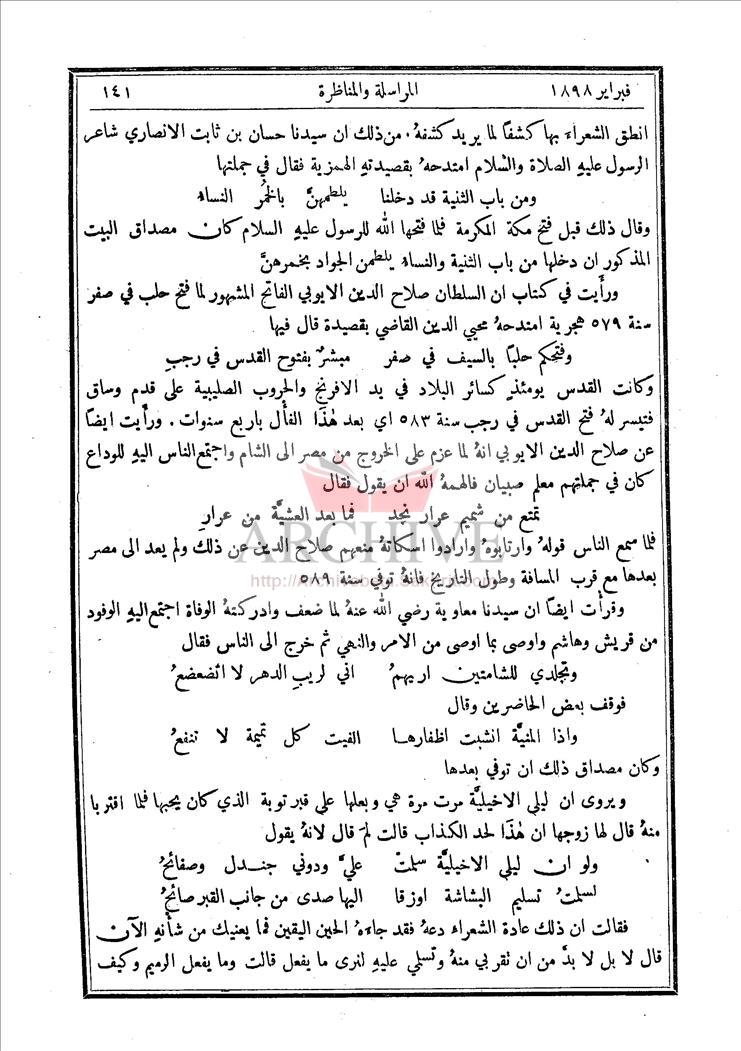 فبراير ١٨٩٨ المراسلة والمناظرة ١٤١
انطق الشعراء بها كشفًا لما يريد كشفهُ. من ذلك ان سيدنا حسان بن ثابت الانصاري شاعر
الرسول عليهِ الصلاة والسلام امتدحهُ بقصيدتهِ الهمزية فقال في جملتها
ومن باب الثنية قد دخلنا يلطمهنَّ بالخُمر النساءُ
وقال ذلك قبل فتح مكة المكرمة فلما فتحها الله للرسول عليهِ السلام كان مصداق البيت
المذكور ان دخلها من باب الثنية والنساءُ يلطمن الجواد بخمرهنَّ
ورأَيت في كتاب ان السلطان صلاح الدين الايوبي الفاتح المشهور لما فتح حلب في صفر
سنة ٥٧٩ هجرية امتدحهُ محيي الدين القاضي بقصيدة قال فيها
وفتحكم حلبًا بالسيف في صفر مبشرٌ بفتوح القدس في رجبِ
وكانت القدس يومئذٍ كسائر البلاد في يد الافرنج والحروب الصليبية على قدم وساق
فتيسر لهُ فتح القدس في رجب سنة ٥٨٣ اي بعد هٰذا الفأل باربع سنوات. ورأَيت ايضًا
عن صلاح الدين الايوبي انهُ لما عزم على الخروج من مصر الى الشام واجتمع الناس اليهِ للوداع
كان في جملتهم معلم صبيان فالهمهُ الله ان يقول فقال
تمتع من شميم عرار نجد فما بعد العشيَّة من عرارِ
فلما سمع الناس قولهُ وارتابوهُ وارادوا اسكاتهُ منعهم صلاح الدين عن ذلك ولم يعد الى مصر
بعدها مع قرب المسافة وطول التاريخ فانهُ توفي سنة ٥٨٩
وقرأت ايضًا ان سيدنا معاوية رضي الله عنهُ لما ضعف وادركتهُ الوفاة اجتمع اليهِ الوفود
من قريش وهاشم واوصى بما اوصى من الامر والنهي ثم خرج الى الناس فقال
وتجلدي للشامتين اريهمُ اني لريبِ الدهر لا اتضعضعُ
فوقف بعض الحاضرين وقال
واذا المنيَّة انشبت اظفارها الفيت كل تميمة لا تنفعُ
وكان مصداق ذلك ان توفي بعدها
ويروى ان ليلى الاخيليَّة مرت مرة هي وبعلها على قبر توبة الذي كان يحبها فلما اقتربا
منهُ قال لها زوجها ان هٰذا لحد الكذاب قالت لِمَ قال لانهُ يقول
ولو ان ليلى الاخيليَّة سلمتْ عليَّ ودوني جندل وصفائحُ
لسلمتُ تسليم البشاشة اوزقا اليها صدى من جانب القبر صائحُ
فقالت ان ذلك عادة الشعراء دعهُ فقد جاءهُ الحين اليقين فما يعنيك من شأنهِ الآن
قال لا بل لا بدَّ من ان تقربي منهُ وتسلمي عليهِ لنرى ما يفعل قالت وما يفعل الرميم وكيف
ARCHIVE